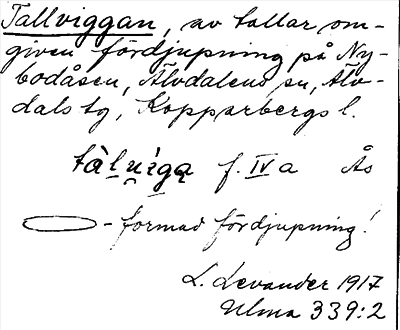 Tallviggan, av tallar om-
given fördjupning på Ny-
bodåsen, Älvdalens sn, Älv-
dals tg, Kopparbergs l.
f. IV a Ås
- formad fördjupning!
L. Levander 1917
Ulma 339:2